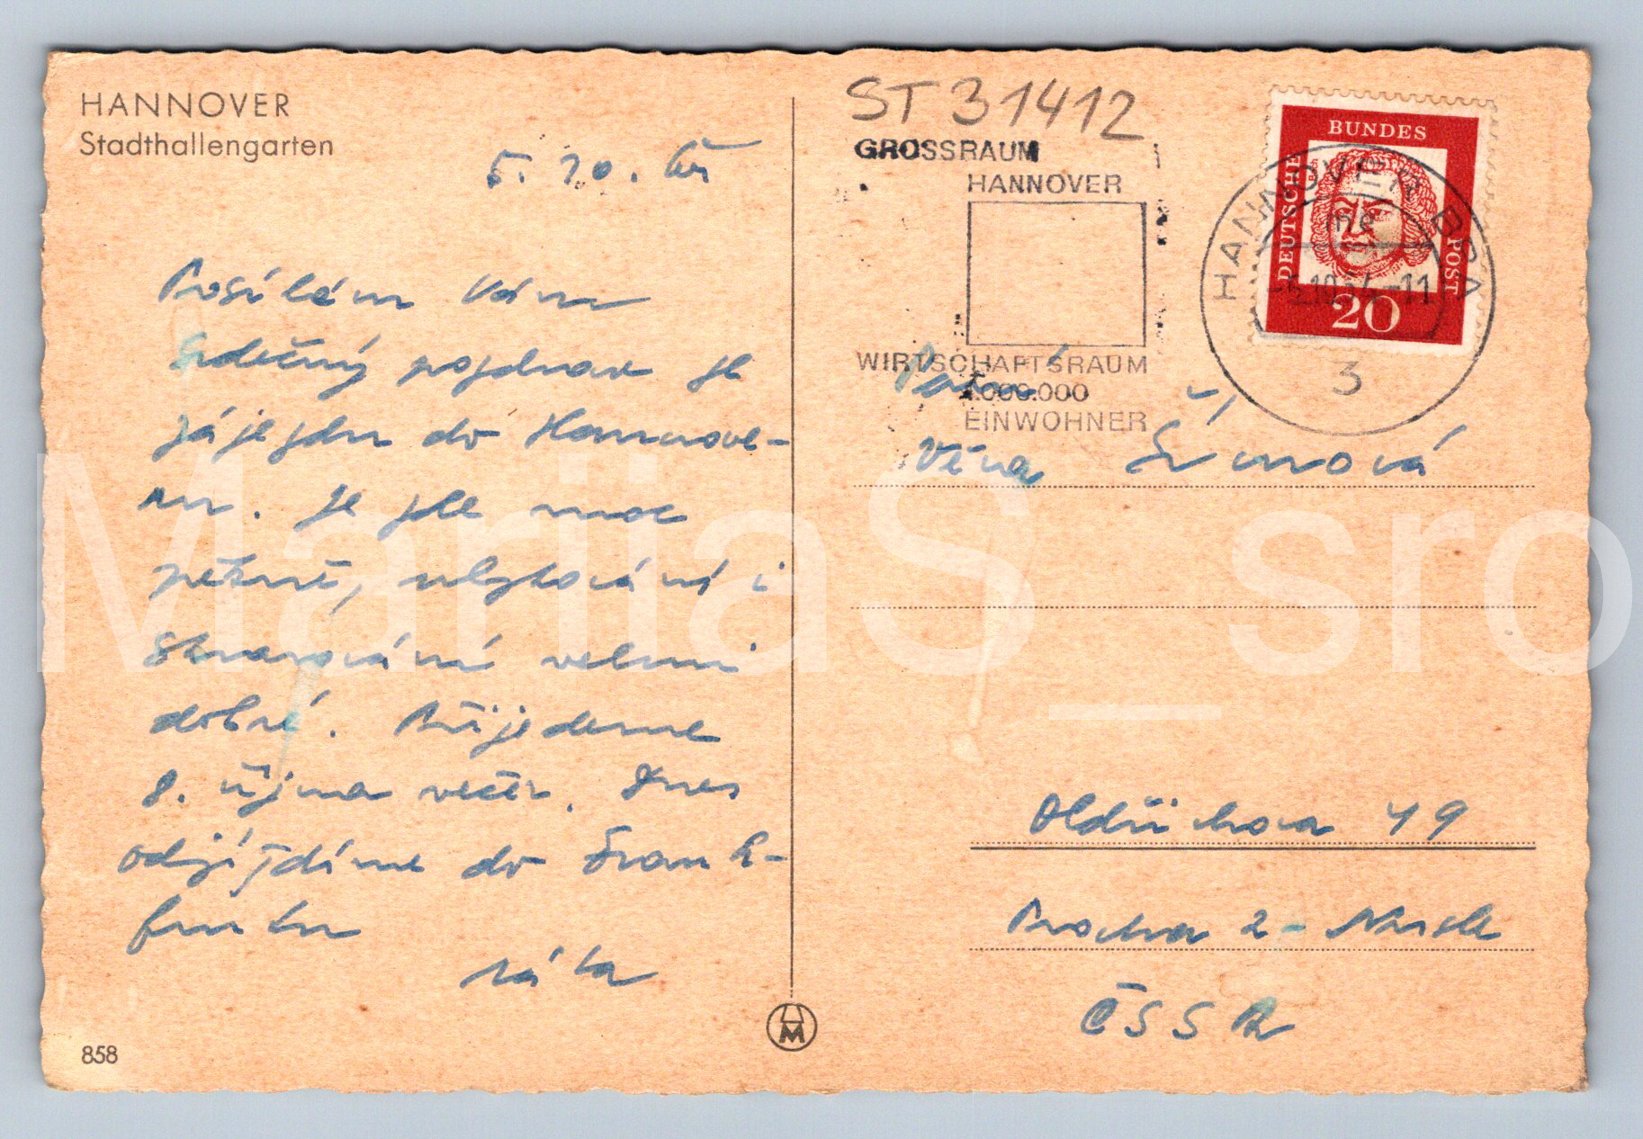 HANNOVER
Stadthallengarten
5. 10.
Posílám Vám
srdečný pozdrav ze
zájezdu do Hannove-
ru. Je zde moc
pěkně, ubytování i
stravování velmi
dobré. Přijedeme
8. října večer. Dnes
odjíždíme do Frank-
furtu
858
M
ST 31412
GROSSRAUM
HANNOVER
WIRTSCHAFTSRAUM
1.000.000
EINWOHNER
DEUTSCHE
BUNDES
POST
20
HANNOVER BPA
5.10.64-11
3
Věra Šímová
Oldřichova 49
Praha 2 - Nusle
ČSSR
MariiaS_sro